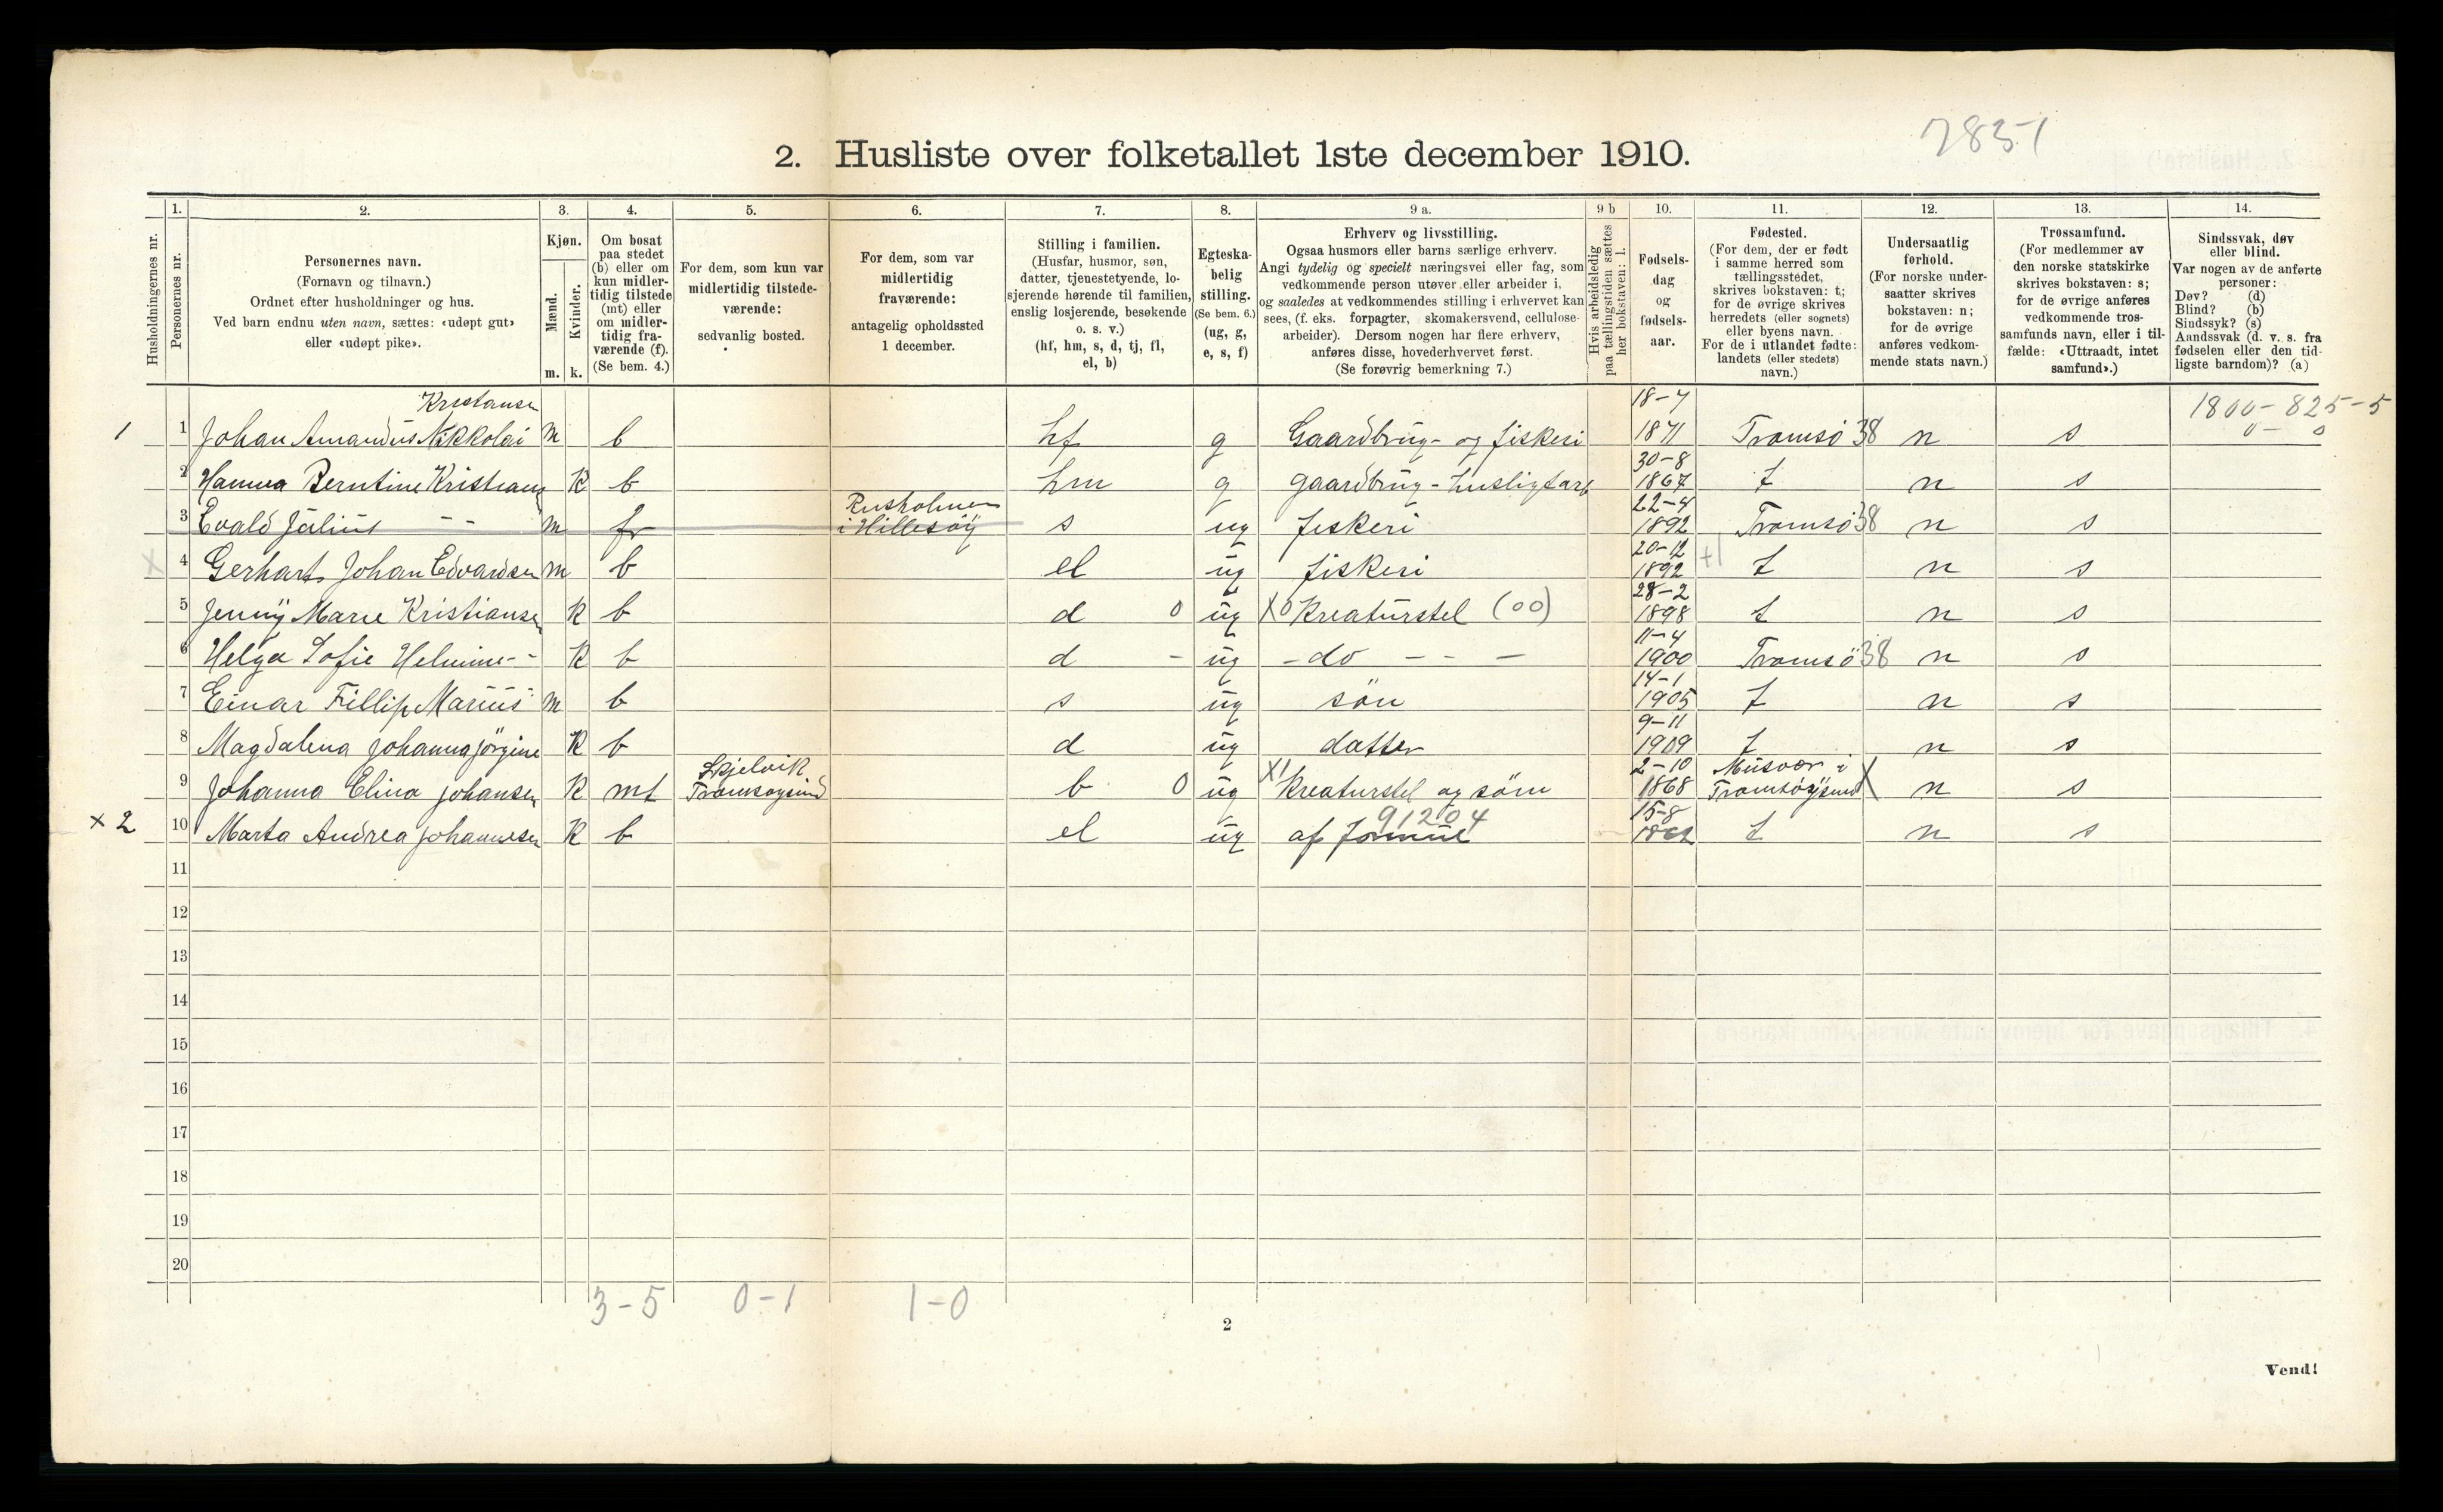 7851
2. Husliste over folketallet 1ste december 1910.
Husholdningernes nr.
1. Personernes nr.
2. Personernes navn.
(Fornavn og tilnavn.)
Ordnet efter husholdninger og hus.
Ved barn endnu uten navn, sættes: «udøpt gut»
eller «udøpt pike».
3. Kjøn.
Mænd. m.
Kvinder. k.
4. Om bosat
paa stedet
(b) eller om
kun midler-
tidig tilstede
(mt) eller
om midler-
tidig fra-
værende (f).
(Se bem. 4.)
5. For dem, som kun var
midlertidig tilstede-
værende:
sedvanlig bosted.
6. For dem, som var
midlertidig
fraværende:
antagelig opholdssted
1 december.
7. Stilling i familien.
(Husfar, husmor, søn,
datter, tjenestetyende, lo-
sjerende hørende til familien,
enslig losjerende, besøkende
o. s. v.)
(hf, hm, s, d, tj, fl,
el, b)
8. Egteska-
belig
stilling.
(Se bem. 6.)
(ug, g,
e, s, f)
9 a. Erhverv og livsstilling.
Ogsaa husmors eller barns særlige erhverv.
Angi tydelig og specielt næringsvei eller fag, som
vedkommende person utøver eller arbeider i,
og saaledes at vedkommendes stilling i erhvervet kan
sees, (f. eks. forpagter, skomakersvend, cellulose-
arbeider). Dersom nogen har flere erhverv,
anføres disse, hovederhvervet først.
(Se forøvrig bemerkning 7.)
9 b Hvis arbeidsledig
paa tællingstiden sættes
her bokstaven: l.
10. Fødsels-
dag
og
fødsels-
aar.
11. Fødested.
(For dem, der er født
i samme herred som
tællingsstedet,
skrives bokstaven: t;
for de øvrige skrives
herredets (eller sognets)
eller byens navn.
For de i utlandet fødte:
landets (eller stedets)
navn.)
12. Undersaatlig
forhold.
(For norske under-
saatter skrives
bokstaven: n;
for de øvrige
anføres vedkom-
mende stats navn.)
13. Trossamfund.
(For medlemmer av
den norske statskirke
skrives bokstaven: s;
for de øvrige anføres
vedkommende tros-
samfunds navn, eller i til-
fælde: «Uttraadt, intet
samfund».)
14. Sindssvak, døv
eller blind.
Var nogen av de anførte
personer:
Døv? (d)
Blind? (b)
Sindssyk? (s)
Aandssvak (d. v. s. fra
fødselen eller den tid-
ligste barndom)? (a)
Kristansen 18-7 1800-825-5
1 1 Johan Amandus Nikkolai m b hf g Gaardbrug- og fiskeri 1871 Tromsö 38 n s 0- 0
30-8
2 Hanna Berntine Kristians K b hm g gaardbrug - husligt arb 1867 t n s
Rusholmen 22-4
3 Evald Julius - - m fr i Hillesöy s ug fiskeri 1892 Tromsö 38 n s
20-12
X 4 Gerhart Johan Edvardsen m b el ug fiskeri 1892 +1 t n s
28-2
5 Jenny Marie Kristianse K b d 0 ug X0 Kreaturstel (00) 1898 t n s
11-4
6 Helga Sofie Helmine - - K b d - ug - do - - - 1900 Tromsö 38 n s
14-1
7 Einar Fillip Marius m b s ug sön 1905 t n s
9-11
8 Magdalena Johanna Jörgine K b d ug datter 1909 t n s
Skjelvik 2-10 Musvær i
9 Johanna Elina Johansen K mt Tromsøysund b 0 ug X1 Kreaturstel og söm 1868 Tromsöysund X n s
91204 15-8
x 2 10 Marta Andrea Johannesen K b el ug af formue t n s
11
12
13
14
15
16
17
18
19
20
3-5 0-1 1-0
2
Vend!